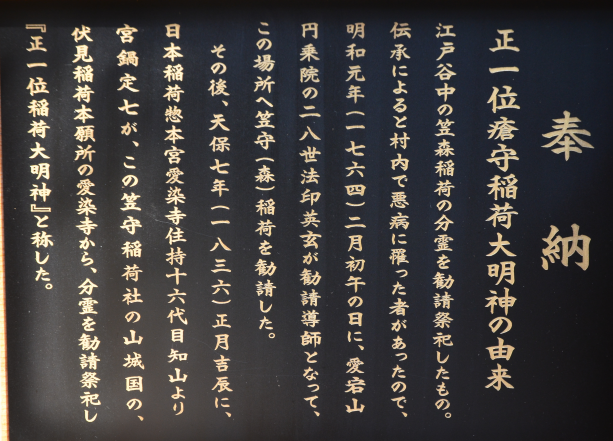 奉納
正一位瘡守稲荷大明神の由来
江戸谷中の笠森稲荷の分霊を勧請祭祀したもの。
伝承によると村内で悪病に罹った者があったので、
明和元年(一七六四)二月初午の日に、愛宕山
円乗院の二八世法印英玄が勧請導師となって、
この場所へ笠守(森)稲荷を勧請した。
その後、天保七年(一八三六)正月吉辰に、
日本稲荷惣本宮愛染寺住持十六代目知山より
宮鍋定七が、この笠守稲荷社の山城国の、
伏見稲荷本願所の愛染寺から、分霊を勧請祭祀し
『正一位稲荷大明神』と称した。